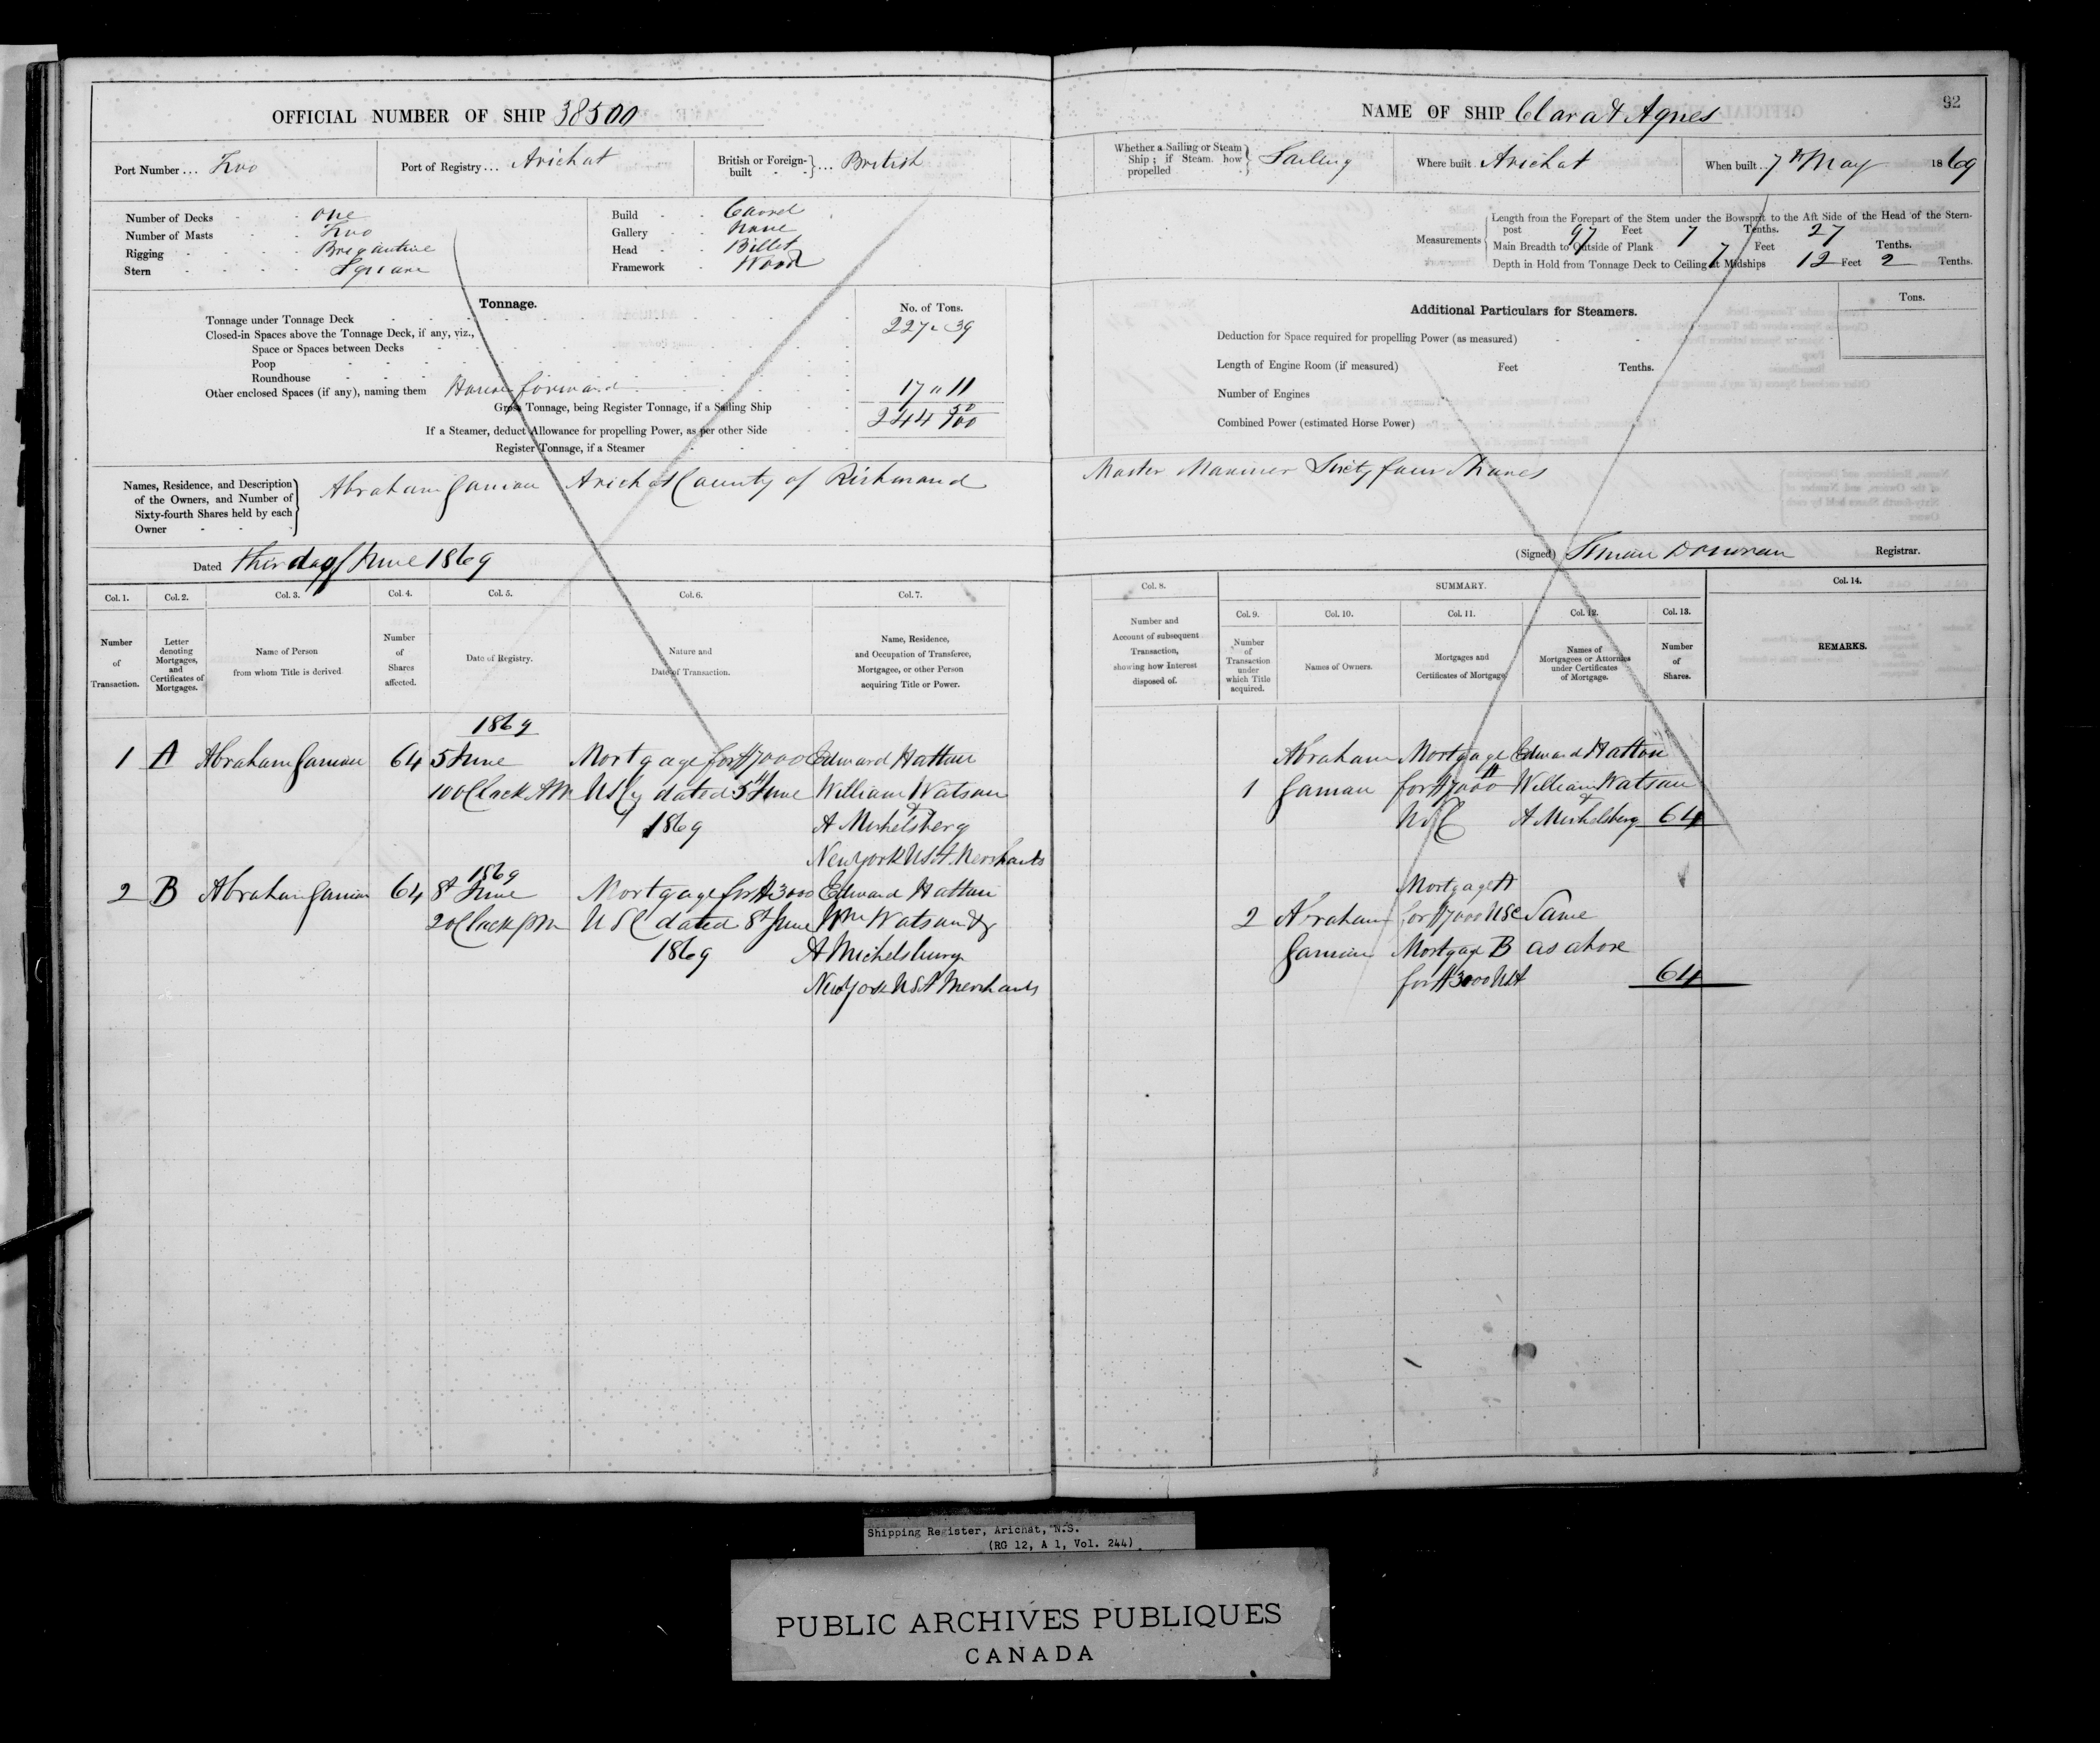 OFFICIAL NUMBER OF SHIP 38500
Port Number ... Two
Port of Registry ... Arichat
British or Foreign-built ... British
Number of Decks - - one
Number of Masts - - Two
Rigging - - - Brigantine
Stern - - - - Square
Build - - Carvel
Gallery - - None
Head - - Billet
Framework - Wood
Tonnage.
No. of Tons.
Tonnage under Tonnage Deck 227 " 39
Closed-in Spaces above the Tonnage Deck, if any, viz.,
Space or Spaces between Decks
Poop
Roundhouse
Other enclosed Spaces (if any), naming them House forward 17 " 11
Gross Tonnage, being Register Tonnage, if a Sailing Ship 244 50/100
If a Steamer, deduct Allowance for propelling Power, as per other Side
Register Tonnage, if a Steamer
Names, Residence, and Description of the Owners, and Number of Sixty-fourth Shares held by each Owner
Abraham Arichat County of Richmond
Dated day of June 1869
Col. 1. Col. 2. Col. 3. Col. 4. Col. 5. Col. 6. Col. 7.
Number of Transaction.
Letter denoting Mortgages, and Certificates of Mortgages.
Name of Person from whom Title is derived
Number of Shares affected.
Date of Registry.
Nature and Date of Transaction.
Name, Residence, and Occupation of Transferee, Mortgagee, or other Person acquiring Title or Power.
1869
1 A Abraham 64 5 June Mortgage for $7000 Edward Hatton
10 OClock AM US Cy dated 5th June William Watson
1869 & A Michelsberg
New York USA Merchants
1869
2 B Abraham 64 8th June Mortgage for $3000 Edward Hatton
2 OClock PM USC dated 8th June Wm Watson &
1869 A Michelsburg
New York USA Merchants
92
NAME OF SHIP Clara & Agnes
Whether a Sailing or Steam Ship; if Steam how propelled Sailing
Where built Arichat
When built .. 7th May 1869
Measurements
Length from the Forepart of the Stem under the Bowsprit to the Aft Side of the Head of the Stern-
post 97 Feet 7 Tenths. 27
Main Breadth to Outside of Plank 7 Feet Tenths.
Depth in Hold from Tonnage Deck to Ceiling at Midships 12 Feet 2 Tenths.
Additional Particulars for Steamers.
Tons.
Deduction for Space required for propelling Power (as measured)
Length of Engine Room (if measured) Feet Tenths.
Number of Engines
Combined Power (estimated Horse Power)
Master Mariner Sixty four Shares
(Signed) Simon Donovan Registrar.
Col. 8. SUMMARY. Col. 14.
Col. 9. Col. 10. Col. 11. Col. 12. Col. 13.
Number and Account of subsequent Transaction, showing how Interest disposed of.
Number of Transaction under which Title acquired.
Names of Owners.
Mortgages and Certificates of Mortgage
Names of Mortgagees or Attornies under Certificates of Mortgage.
Number of Shares.
REMARKS.
Abraham Mortgage Edward Hatton
1 A for $7000 William Watson
USC & A Michelsberg 64
Mortgage A
2 Abraham for $7000 USC Same
Mortgage B as above
for $3000 USA 64
Shipping Register, Arichat, N.S.
(RG 12, A 1, Vol. 244)
PUBLIC ARCHIVES PUBLIQUES
CANADA